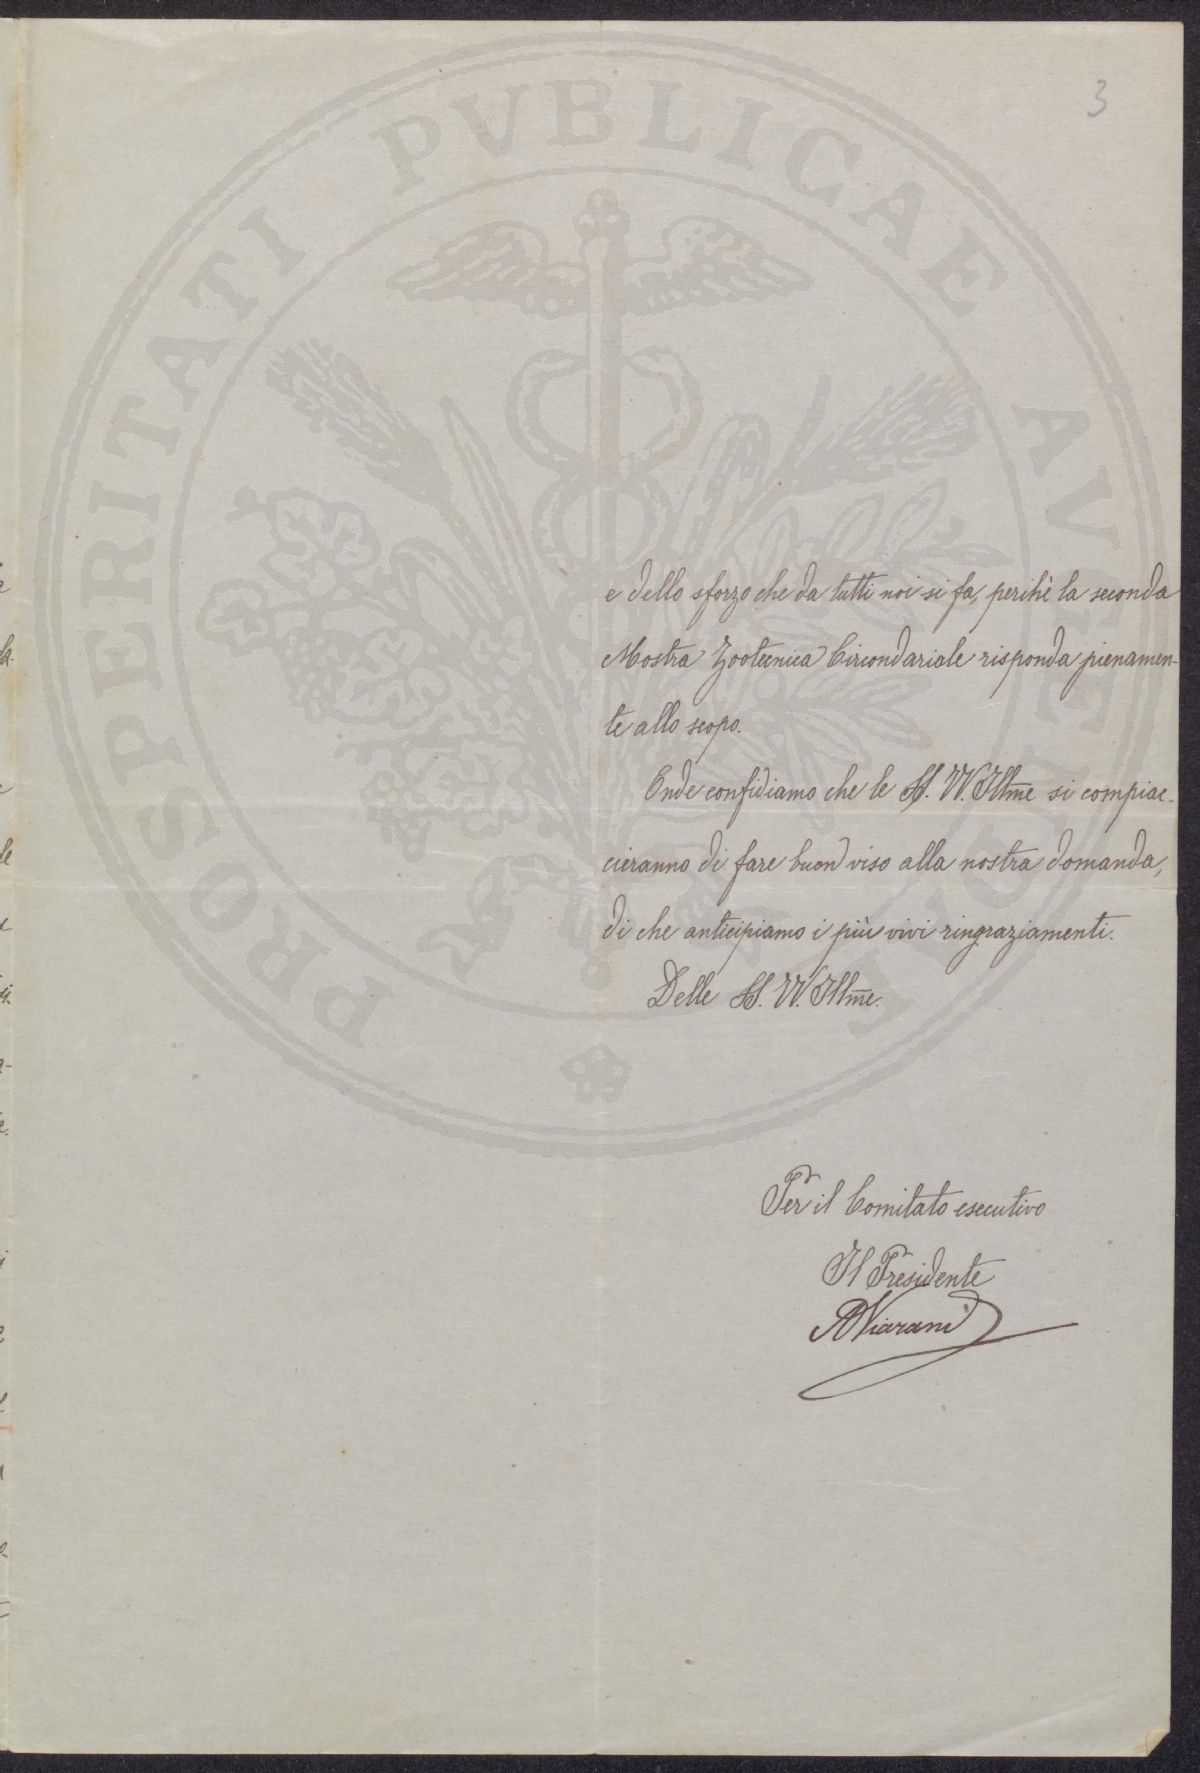 3
e dello sforzo che da tutti noi si fa, perchè la seconda
Mostra Zootecnica Circondariale risponda pienamen-
te allo scopo.
Onde confidiamo che le SS. VV. Illme si compiac-
cieranno di fare buon viso alla nostra domanda,
di che anticipiamo i più vivi ringraziamenti.
Delle SS. VV. Illme.
Per il Comitato esecutivo
Il Presidente
PROSPERITATI PVBLICAE AVGENDAE